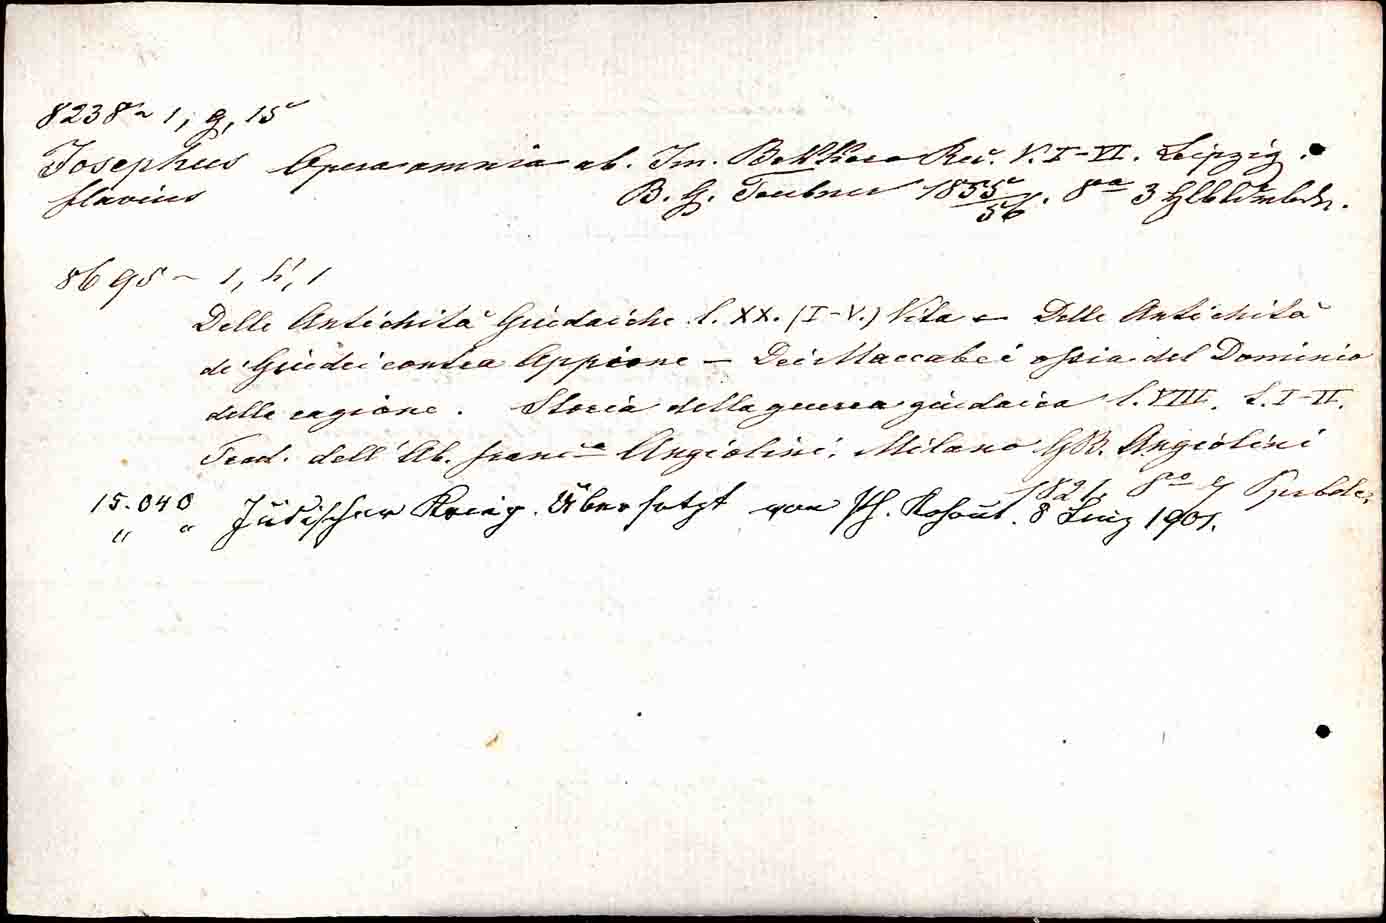 8238 ~ 1, g, 15
Josephus Opera omnia ab. Im. Bekkero Rec. V. I-VI. Leipzig.
flavius B. G. Teubner 1855/56. 8vo 3 Hlbldrbde.
8695 ~ 1, h', 1
Delle Antichità Giudaiche l. XX. (I-V.) Vita e - Delle Antichità
de' Giudei contra Appione - Dei Maccabei ossia del Dominio
della ragione. Storia della guerra giudaica l. VIII. t. I-II.
Trad. dell' Ab. Franc.o Angiolini. Milano GB. Angiolini
1821. 8vo
15.040 Jüdischer Krieg. Übersetzt von Ph. Kohout. 8 Linz 1901.
" "